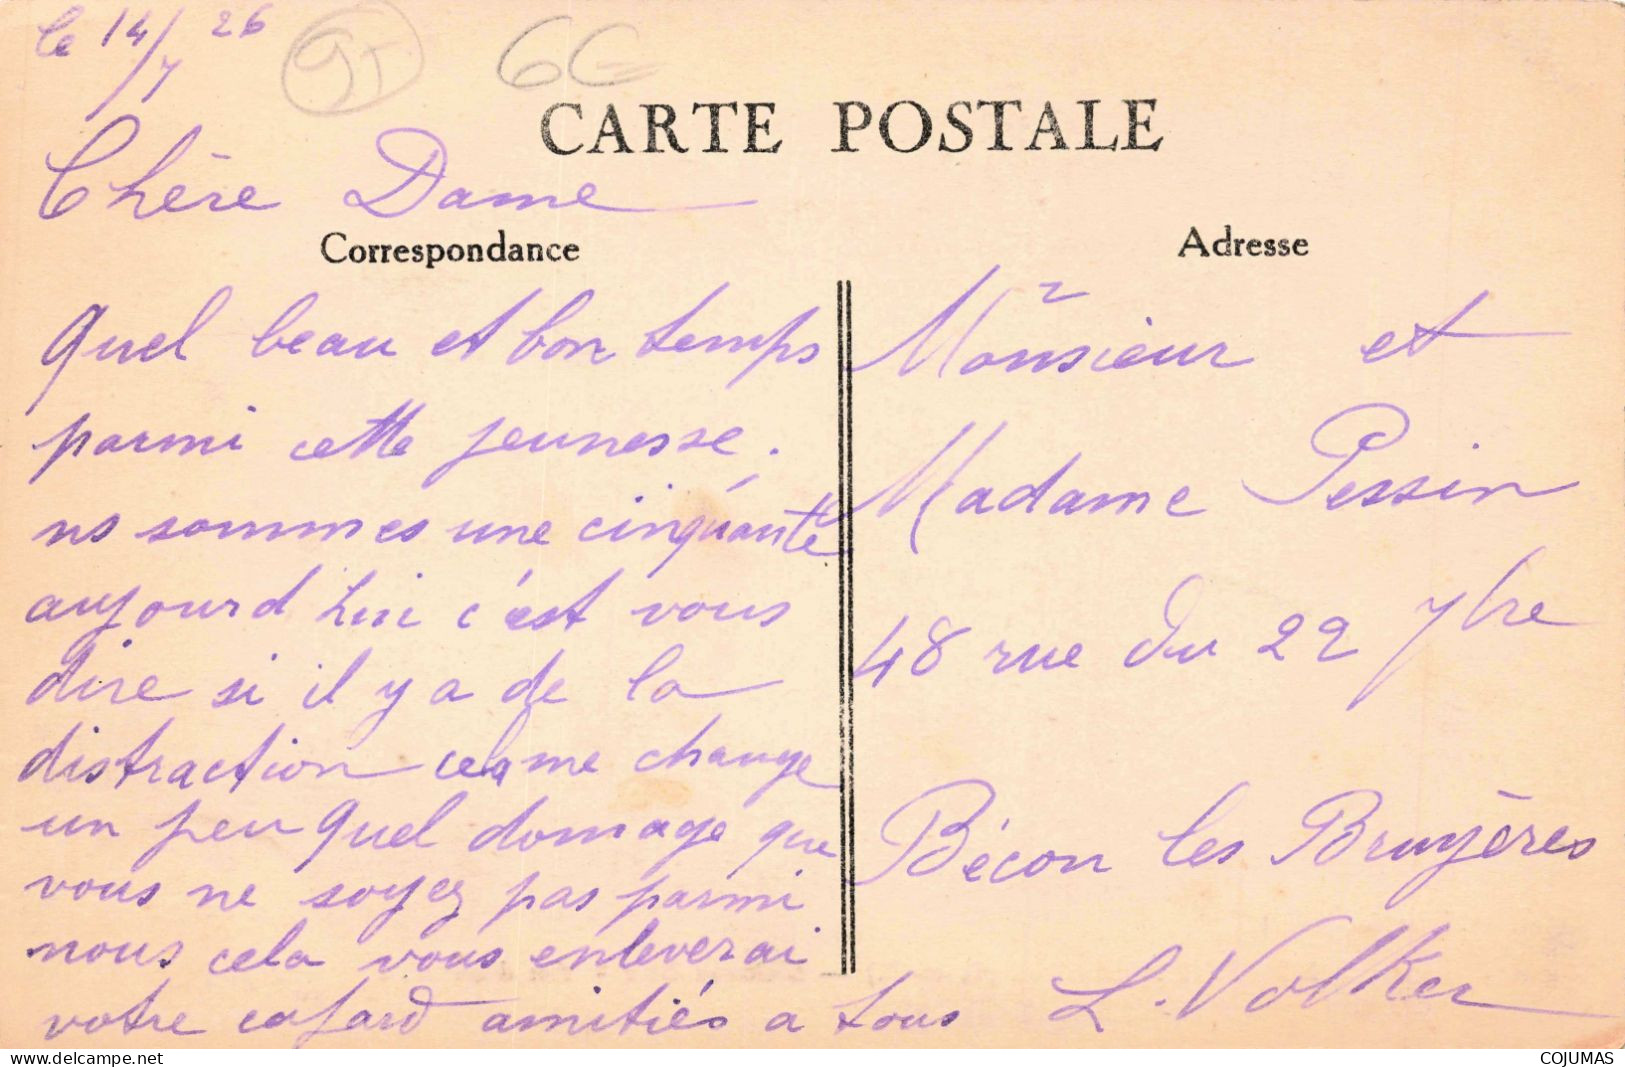 le 14/7 26
95
6G
CARTE POSTALE
Chère Dame
Correspondance
Quel beau et bon temps
parmi cette jeunesse.
ns sommes une cinquante
aujourd hui c'est vous
dire si il y a de la
distraction cela me change
un peu quel domage que
vous ne soyez pas parmi
nous cela vous enleverai
votre cafard amitiés a tous
L. Volker
Adresse
Monsieur et
Madame Pessin
48 rue du 22 7bre
Bécon les Bruyères
COJUMAS
www.delcampe.net